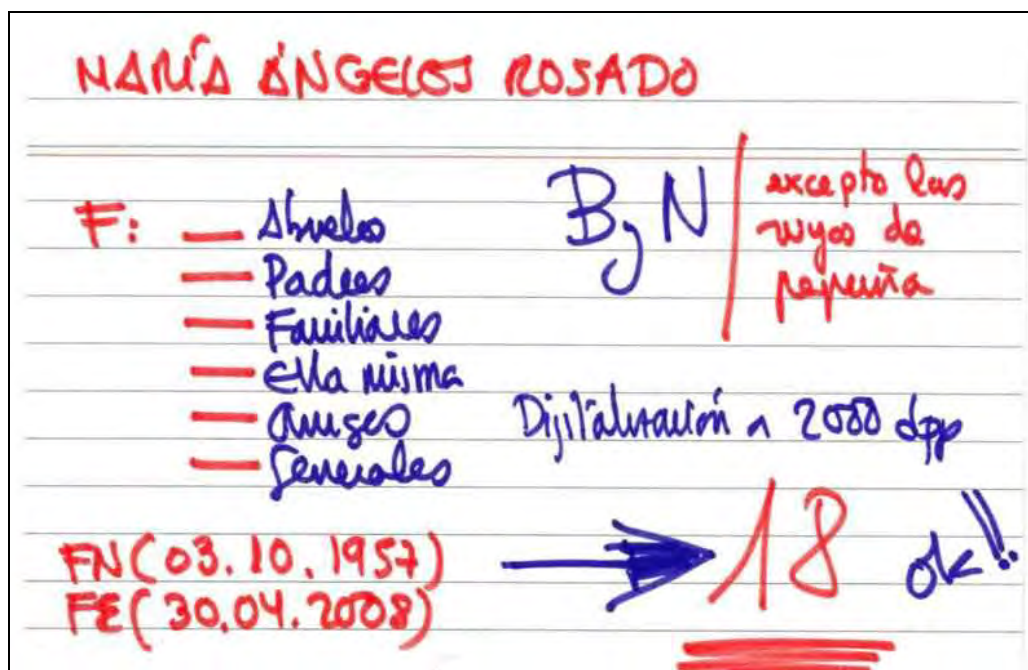 MARÍA ÁNGELOS ROSADO
F: — Abuelos
— Padres
— Familiares
— Ella misma
— Amigos
— Generales
B y N
excepto las
suyas de
pequeña
Dijitalización a 2000 dpp
FN (03.10.1957)
FE (30.04.2008)
18 ok!!